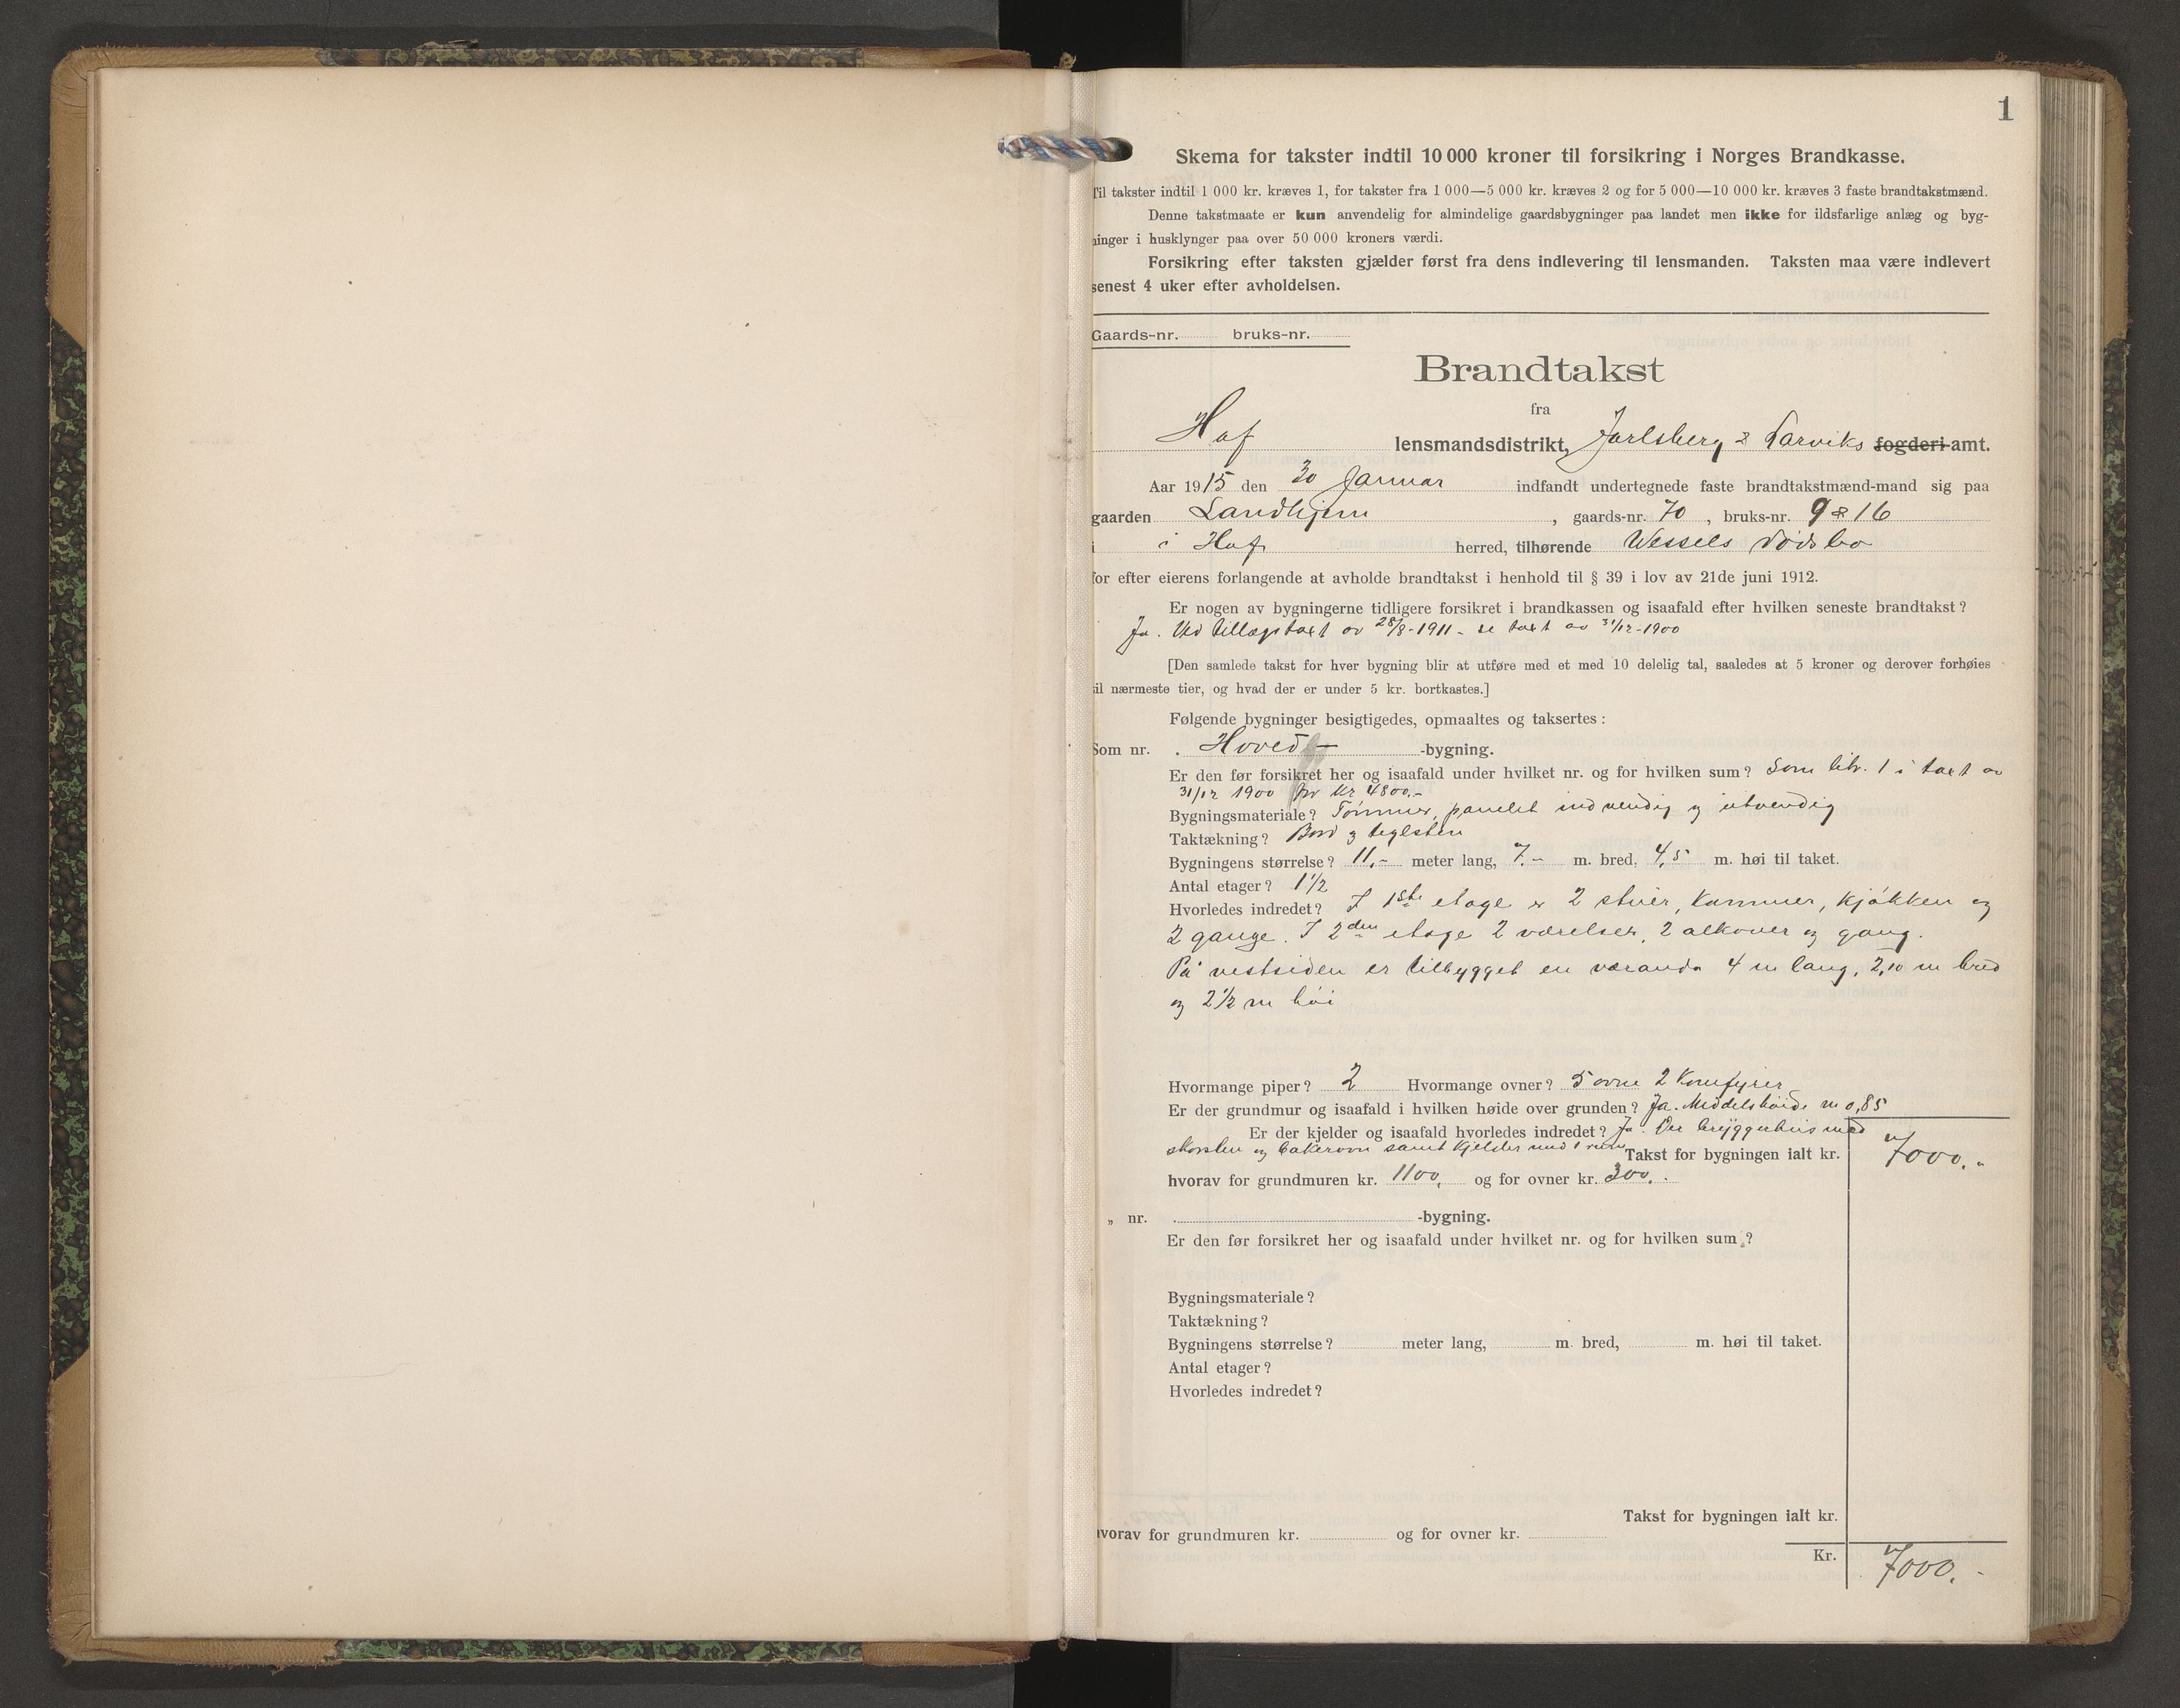 1
Skema for takster indtil 10 000 kroner til forsikring i Norges Brandkasse.
Til takster indtil 1 000 kr. kræves 1, for takster fra 1 000—5 000 kr. kræves 2 og for 5 000—10 000 kr. kræves 3 faste brandtakstmænd.
Denne takstmaate er kun anvendelig for almindelige gaardsbygninger paa landet men ikke for ildsfarlige anlæg og byg-
ninger i husklynger paa over 50 000 kroners værdi.
Forsikring efter taksten gjælder først fra dens indlevering til lensmanden. Taksten maa være indlevert
senest 4 uker efter avholdelsen.
Gaards-nr. bruks-nr.
Brandtakst
fra
Hof lensmandsdistrikt, Jarlsberg & Larviks fogderi amt.
Aar 1915 den 30 Januar indfandt undertegnede faste brandtakstmænd-mand sig paa
gaarden Landhjem, gaards-nr. 70, bruks-nr. 9 & 16
i i Hof herred, tilhørende Wessels Dødsbo
for efter eierens forlangende at avholde brandtakst i henhold til § 39 i lov av 21de juni 1912.
Er nogen av bygningerne tidligere forsikret i brandkassen og isaafald efter hvilken seneste brandtakst?
Ja. Ved tillægstaxt av 28/8-1911 - se taxt av 31/12-1900
[Den samlede takst for hver bygning blir at utføre med et med 10 delelig tal, saaledes at 5 kroner og derover forhøies
til nærmeste tier, og hvad der er under 5 kr. bortkastes.]
Følgende bygninger besigtigedes, opmaaltes og taksertes:
Som nr. . Hoved- -bygning.
Er den før forsikret her og isaafald under hvilket nr. og for hvilken sum? Som litr. 1 i taxt av
31/12 1900 for Kr 4800.-
Bygningsmateriale? Tømmer, panelet indvendig og utvendig
Taktækning? Bord og teglsten
Bygningens størrelse? 11,- meter lang, 7.- m. bred, 4,5 m. høi til taket.
Antal etager? 1 1/2
Hvorledes indredet? I 1ste etage er 2 stuer, kammer, kjøkken og
2 gange. I 2den etage 2 værelser, 2 alkover og gang.
På vestsiden er tilbygget en veranda 4 m lang, 2,10 m bred
og 2 1/2 m høi
Hvormange piper? 2 Hvormange ovner? 5 ovne 2 Komfyrer
Er der grundmur og isaafald i hvilken høide over grunden? Ja. Middelshøide m 0,85
Er der kjelder og isaafald hvorledes indredet? Ja. Der bryggerhus med
skorsten og bakerovn samt kjelder med 1 rum Takst for bygningen ialt kr. 7000.-
hvorav for grundmuren kr. 1100, og for ovner kr. 300.-
„ nr. . -bygning.
Er den før forsikret her og isaafald under hvilket nr. og for hvilken sum?
Bygningsmateriale?
Taktækning?
Bygningens størrelse? meter lang, m. bred, m. høi til taket.
Antal etager?
Hvorledes indredet?
Takst for bygningen ialt kr.
hvorav for grundmuren kr. og for ovner kr.
Kr. 7000.-